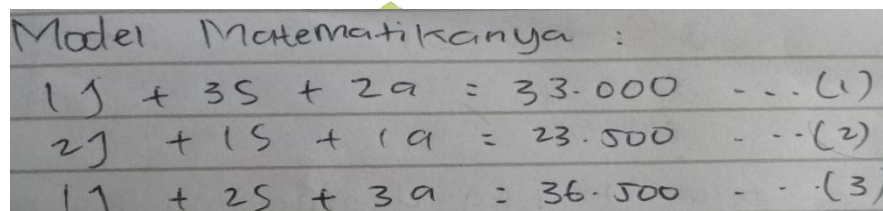 Model Matematikanya :
1J + 3S + 2a = 33.000 ....(1)
2J + 1S + 1a = 23.500 ...(2)
1J + 2S + 3a = 36.500 ...(3)